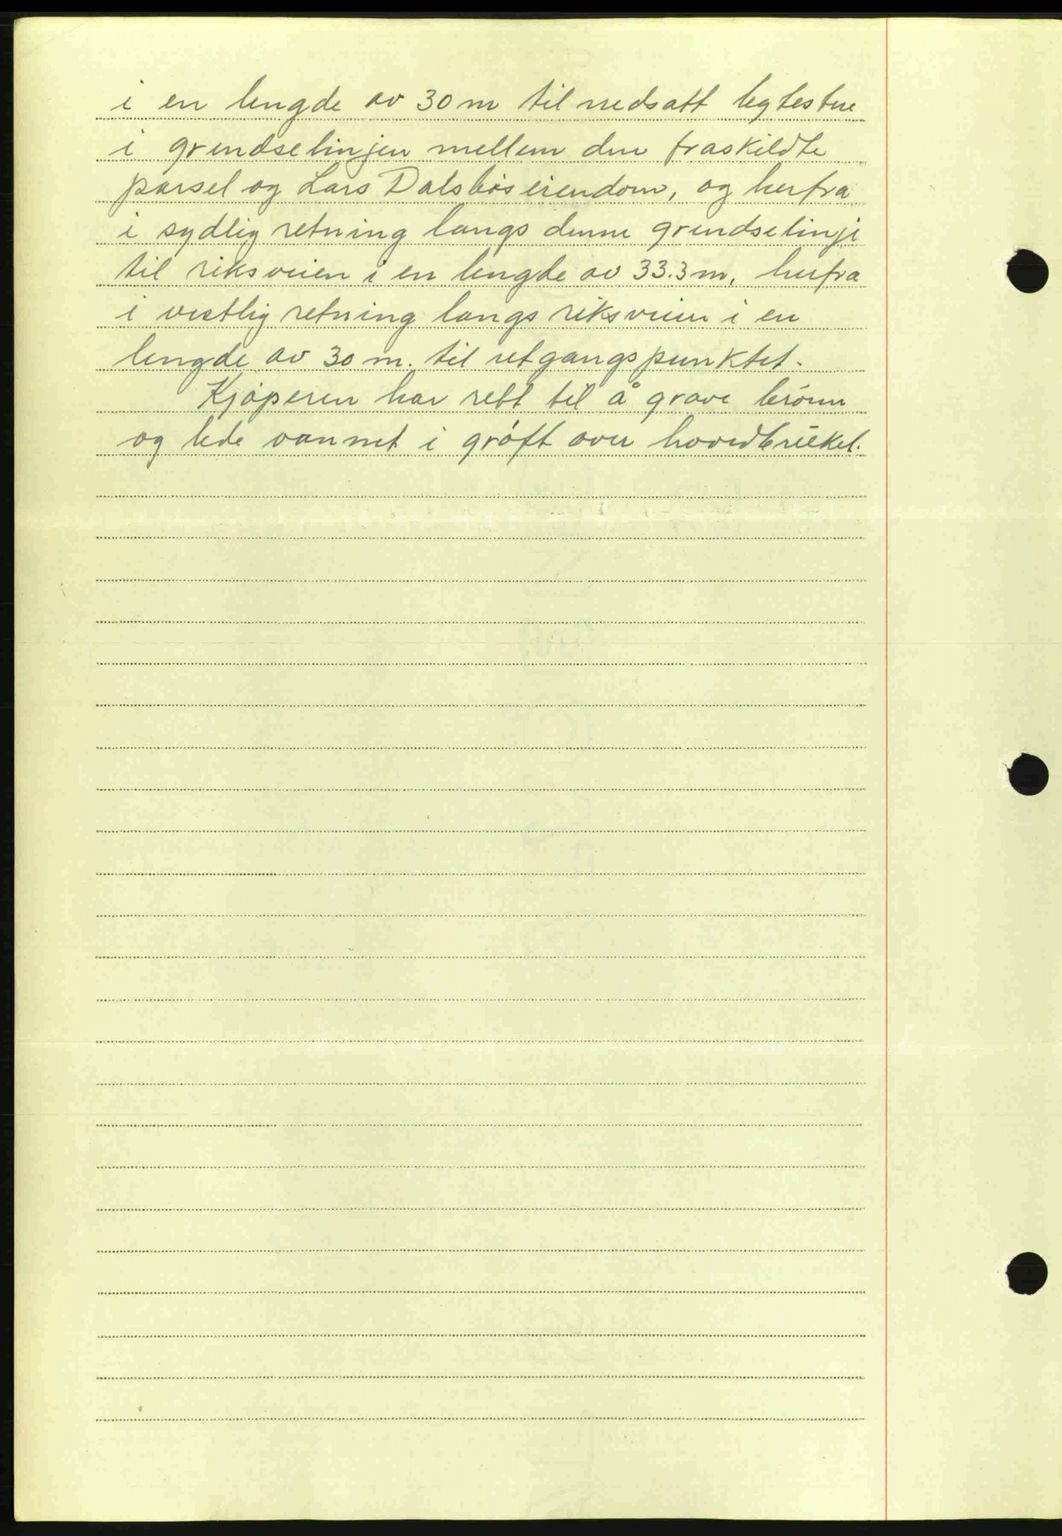 i en lengde av 30 m til nedsatt legtestene
i grendselinjen mellem den fraskildte
parsel og Lars Dalsbøs eiendom, og herfra
i sydlig retning langs denne grendselinje
til riksveien i en lengde av 33.3 m, herfra
i vestlig retning langs riksveien i en
lengde av 30 m. til utgangspunktet.
Kjøperen har rett til å grave brønn
og lede vannet i grøft over hovedbruket.